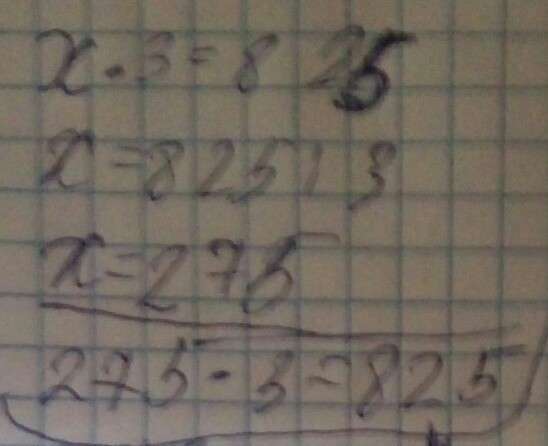 x · 3 = 825
x = 825 : 3
x = 275
275 · 3 = 825